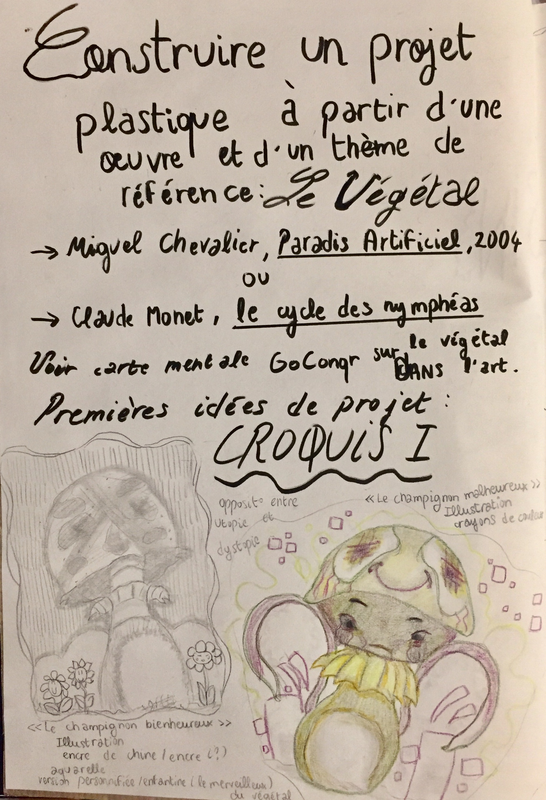 Construire un projet
plastique à partir d'une
œuvre et d'un thème de
référence: Le Végétal
→ Miguel Chevalier, Paradis Artificiel, 2004
ou
→ Claude Monet, le cycle des nymphéas
Voir carte mentale GoConqr sur le végétal
DANS l'art.
Premières idées de projet :
CROQUIS I
opposit° entre
utopie et
dystopie
<<Le champignon malheureux>>
Illustration
crayons de couleur
<<Le champignon bienheureux>>
Illustration
encre de chine/encre (?)
aquarelle
version personnifiée/enfantine (le merveilleux)
du végétal